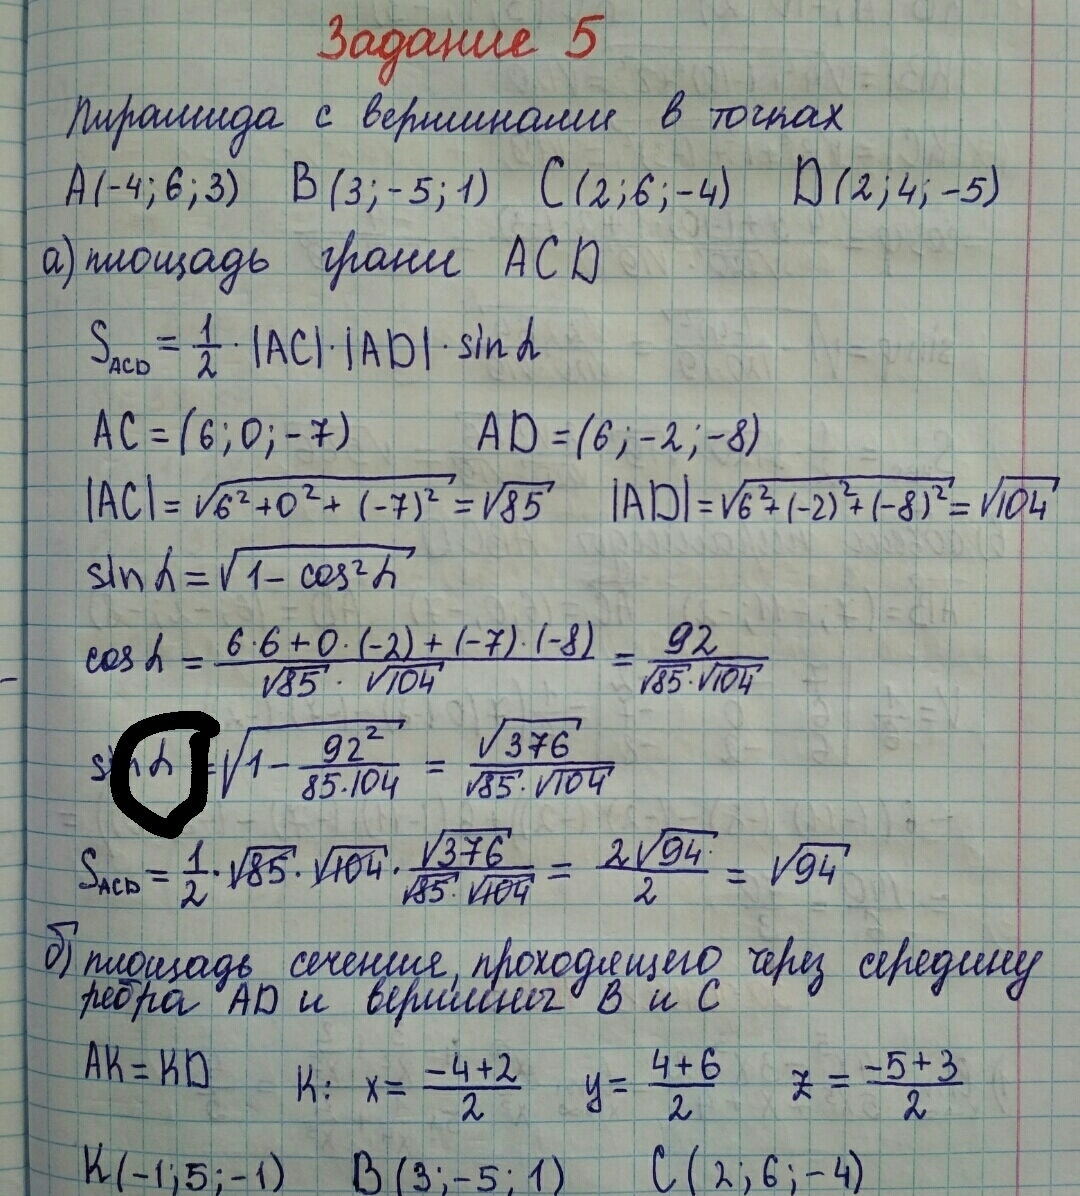 Задание 5
Пирамида с вершинами в точках
A(-4;6;3) B(3;-5;1) C(2;6;-4) D(2;4;-5)
а) площадь грани ACD
S_ACD = 1/2 · |AC| · |AD| · sin α
AC = (6;0;-7) AD = (6;-2;-8)
|AC| = √(6²+0²+(-7)²) = √85 |AD| = √(6²+(-2)²+(-8)²) = √104
sin α = √(1 - cos² α)
cos α = (6·6+0·(-2)+(-7)·(-8))/(√85 · √104) = 92/(√85·√104)
sin α = √(1 - 92²/(85·104)) = √376/(√85·√104)
S_ACD = 1/2 · √85 · √104 · √376/(√85·√104) = 2√94/2 = √94
б) площадь сечение, проходящего через середину
ребра AD и вершины B и C
AK = KD K: x = (-4+2)/2 y = (4+6)/2 z = (-5+3)/2
K(-1;5;-1) B(3;-5;1) C(2;6;-4)